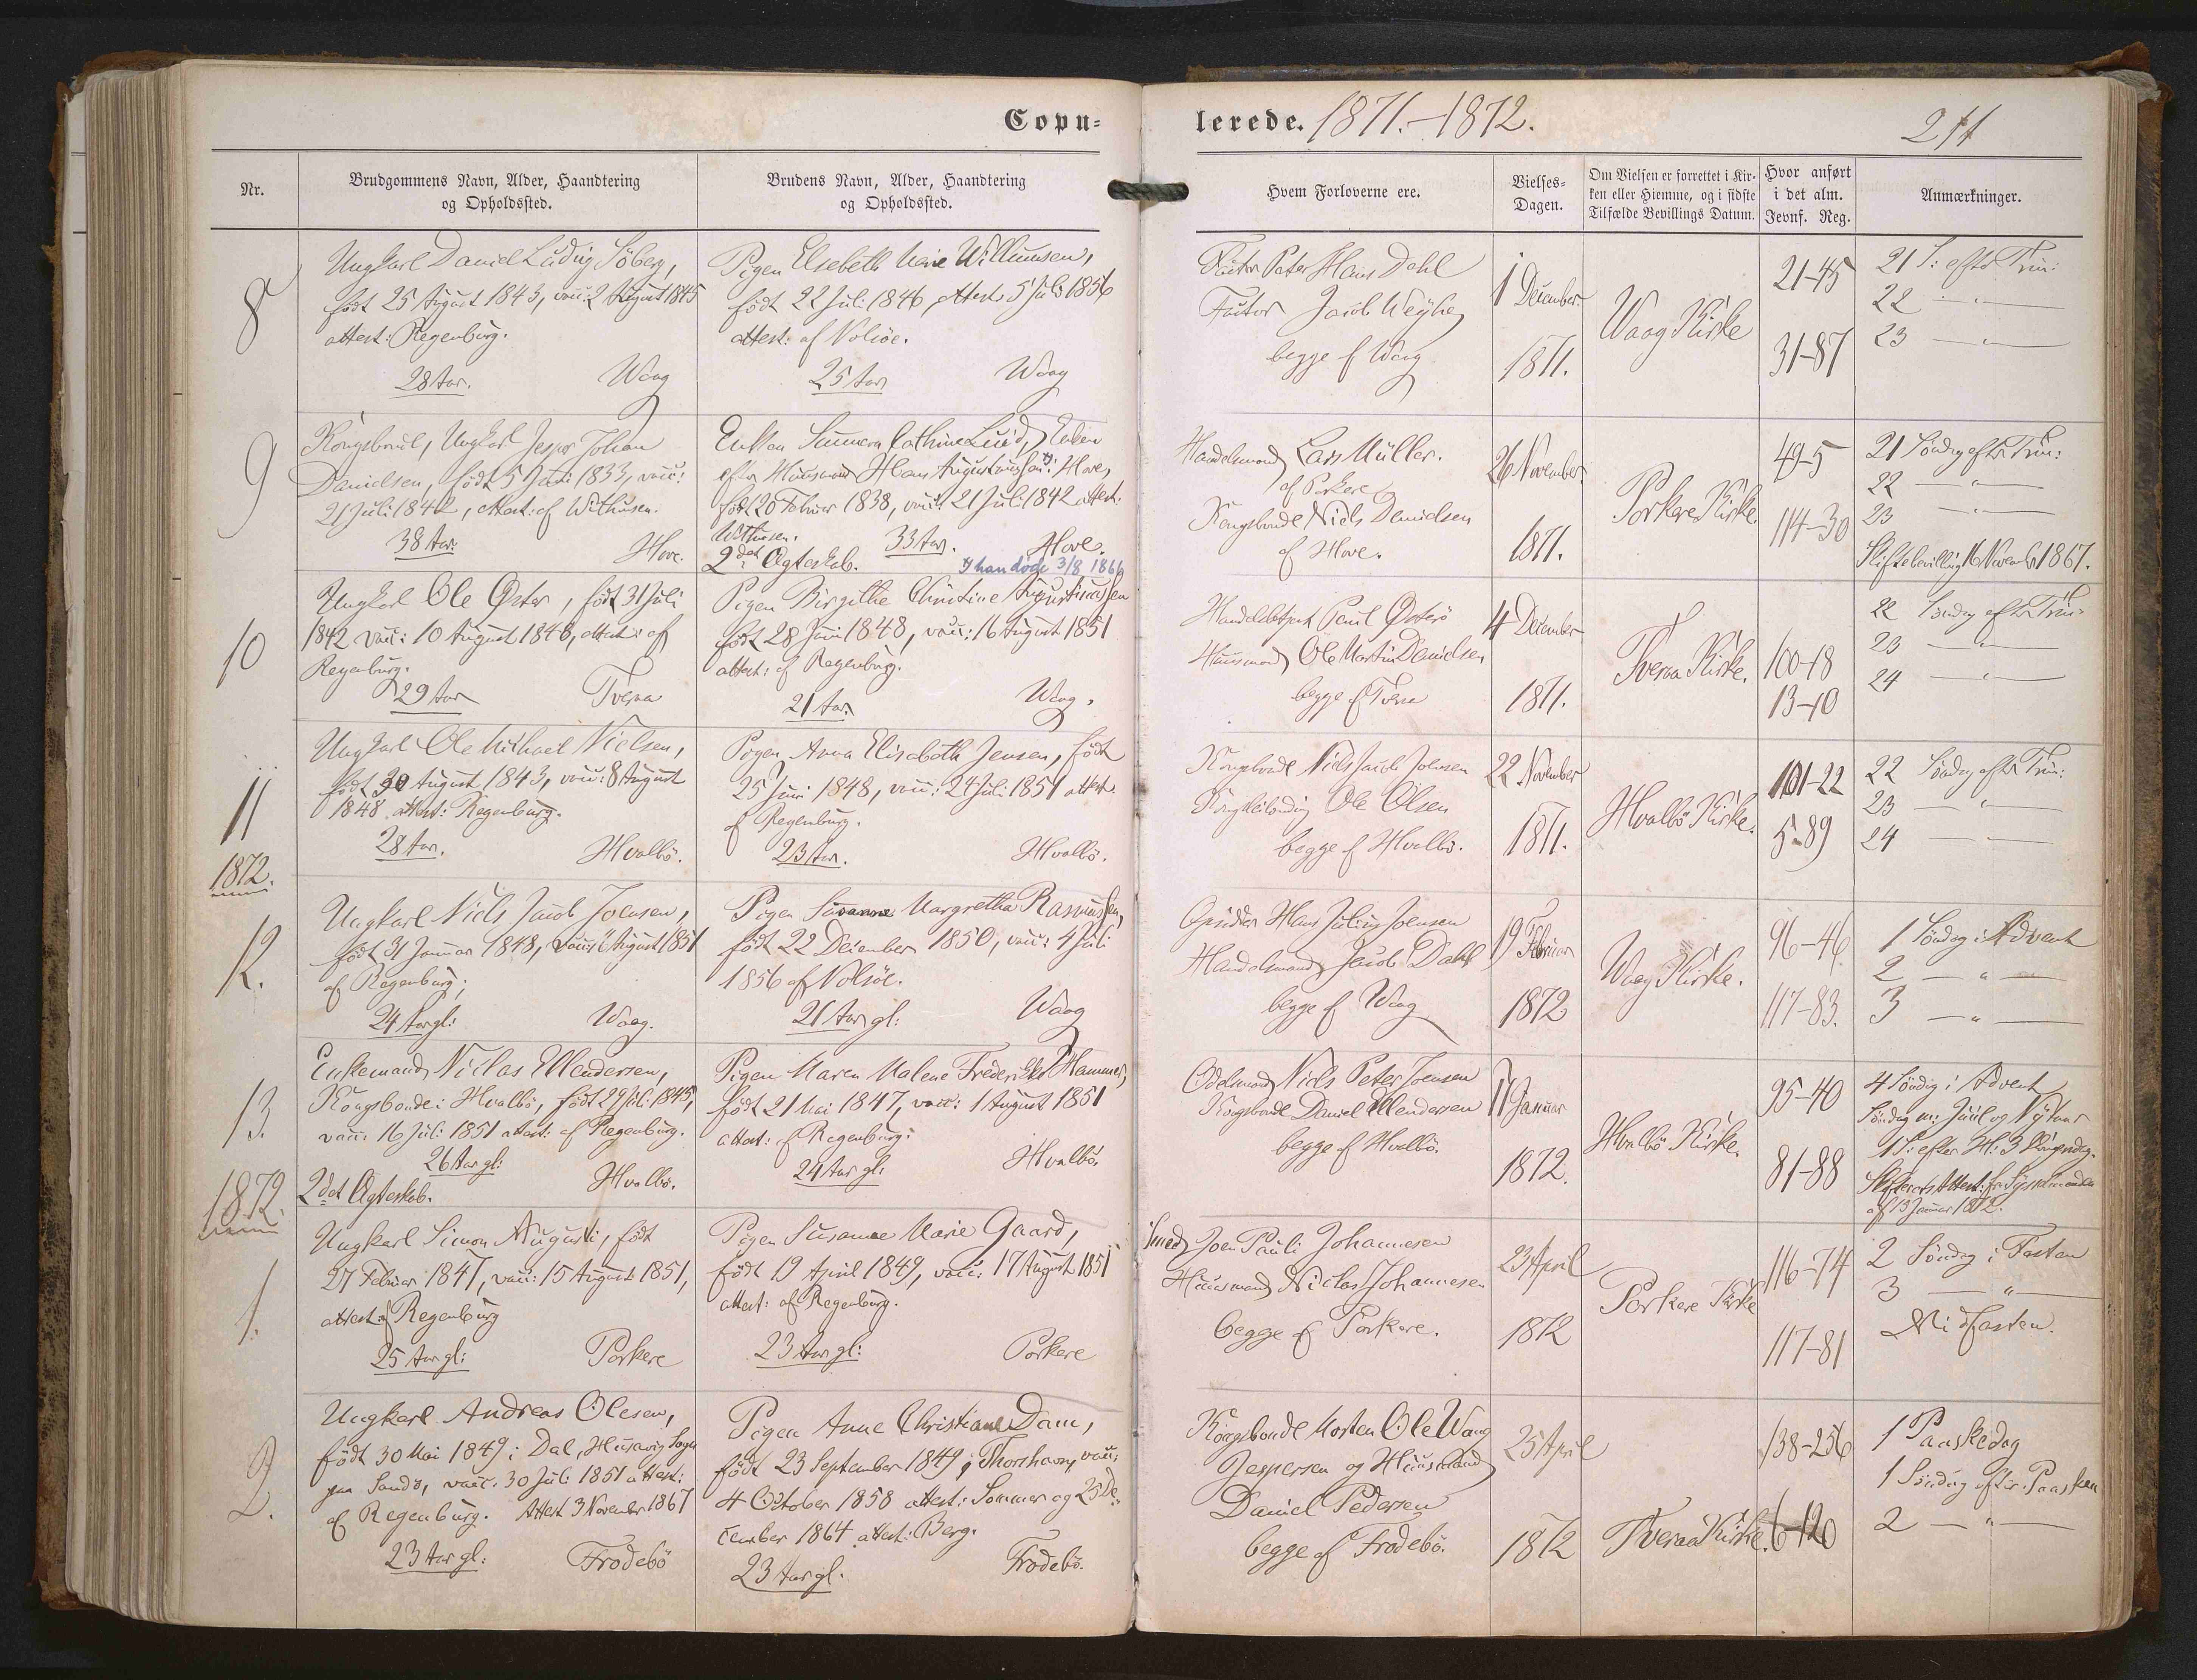 Copu-
lerede. 1871.-1872.
211
Nr.
Brudgommens Navn, Alder, Haandtering
og Opholdssted.
Brudens Navn, Alder, Haandtering
og Opholdssted.
Hvem Forloverne ere.
Vielses-
Dagen.
Om Vielsen er forrettet i Kir-
ken eller Hiemme, og i sidste
Tilfælde Bevillings Datum.
Hvor anført
i det alm.
Jevnf. Reg.
Anmærkninger.
8
Ungkarl Daniel Ludvig Söberg,
født 25 August 1843, vacc: 2 August 1845
attest: Regenburg.
28 Aar. Waag
Pigen Elsebeth Marie Willumsen,
født 22 Juli 1846, attest 5 Juli 1856
attest: af Nolsöe.
25 Aar Waag
Factor Peter Hans Dahl
Factor Jacob Weyhe
begge af Waag
1 December
1871.
Waag Kirke
21-45
31-87
21 S: efter Trin:
22 — " —
23 — " —
9
Kongsbonde, Ungkarl Jesper Johan
Danielsen, født 5 1833, vacc:
21 Juli 1842, attest: af Withusen.
38 Aar. Hove.
Enken Sunneva Cathrine Enke
efter Huusmand Hans Augustinussen i Hove,
født 20 Februar 1838, vacc: 21 Juli 1842 attest:
Withusen. 33 Aar. Hove.
2det Ægteskab. han døde 3/8 1866
Handelsmand Lars Müller.
af Porkere
Kongsbonde Niels Danielsen
af Hove.
26 November
1871.
Porkere Kirke.
49-5
114-30
21 Søndag efter Trin:
22 — " —
23 — " —
Skiftebevilling 16 November 1867.
10
Ungkarl Ole Øster, født 31 Juli
1842 vacc: 10 August 1848, attest: af
Regenburg.
29 Aar Tveraa
Pigen Birgithe Christine Augustinussen
født 28 Juni 1848, vacc: 16 August 1851
attest: af Regenburg.
21 Aar. Waag.
Paul Østerö
Huusmand Ole Martin Danielsen
begge af Tveraa
4 December
1871.
Tveraa Kirke.
100-18
13-10
22 Søndag efter Trin:
23 — " —
24 — " —
11
Ungkarl Ole Michael Nielsen,
født 30 August 1843, vacc: 8 August
1848 attest: Regenburg.
28 Aar. Hvalbö.
Pigen Anna Elisabeth Jensen, født
25 Juni 1848, vacc: 24 Juli 1851 attest
af Regenburg.
23 Aar. Hvalbö.
Kongsbonde Niels Jacob Joensen
Ole Olsen
begge af Hvalbö.
22 November
1871.
Hvalbö Kirke.
101-22
5-89
22 Søndag efter Trin:
23 — " —
24 — " —
1872.
12.
Ungkarl Niels Jacob Joensen,
født 31 Januar 1848, vacc: August 1851
af Regenburg;
24 Aar gl: Waag.
Pigen Susanna Margretha Rasmussen,
født 22 December 1850, vacc: 4 Juli
1856 af Nolsöe.
21 Aar gl: Waag
Opsidder Hans Julius Joensen
Handelsmand Jacob Dahl
begge af Waag
19 Februar
1872
Waag Kirke.
96-46
117-83.
1 Søndag i Advent
2 — " —
3 — " —
13.
Enkemand Niclas Ellendersen,
Kongsbonde i Hvalbö, født 29 Juli 1845,
vacc: 16 Juli 1851 attest: af Regenburg.
26 Aar gl: Hvalbö.
2det Ægteskab.
Pigen Maren Malene Fredericke Hammer,
født 21 Mai 1847, vacc: 1 August 1851
attest: af Regenburg.
24 Aar gl: Hvalbö.
Odelsmand Niels Peter Joensen
Kongsbonde Daniel Ellendersen
begge af Hvalbö.
17 Januar
1872.
Hvalbö Kirke.
95-40
81-88
4 Søndag i Advent
Søndag m: Juul og Nytaar
1 S: efter H: 3 Kongersdag.
Skifterets Attest: fra Sysselmanden
af 13 Januar 1872.
1872.
1.
Ungkarl Simon Augusti, født
27 Februar 1847, vacc: 15 August 1851,
attest: af Regenburg
25 Aar gl: Porkere
Pigen Susanne Marie Gaard,
født 19 April 1849, vacc: 17 August 1851
attest: af Regenburg.
23 Aar gl: Porkere
Smed Joen Pauli Johannesen
Huusmand Niclas Johannesen
begge af Porkere.
23 April
1872
Porkere Kirke
116-74
117-81
2 Søndag i Fasten
3 — " —
Midfasten.
2.
Ungkarl Andreas Olesen,
født 30 Mai 1849 i Dal, Husavig Sogn
paa Sandö, vacc: 30 Juli 1851 attest:
af Regenburg. Attest 3 November 1867
23 Aar gl: Frodebö
Pigen Anne Christiane Dam,
født 23 September 1849 i Thorshavn, vacc:
4 October 1858 attest: Sommer og 25 De-
cember 1864 attest: Berg.
23 Aar gl. Frodebö.
Kongsbonde Morten Ole Waag
Jespersen og Huusmand
Daniel Pedersen
begge af Frodebö.
25 April
1872
Tveraa Kirke.
138-256
6-120
1 Paaskedag
1 Søndag efter Paasken
2 — " —